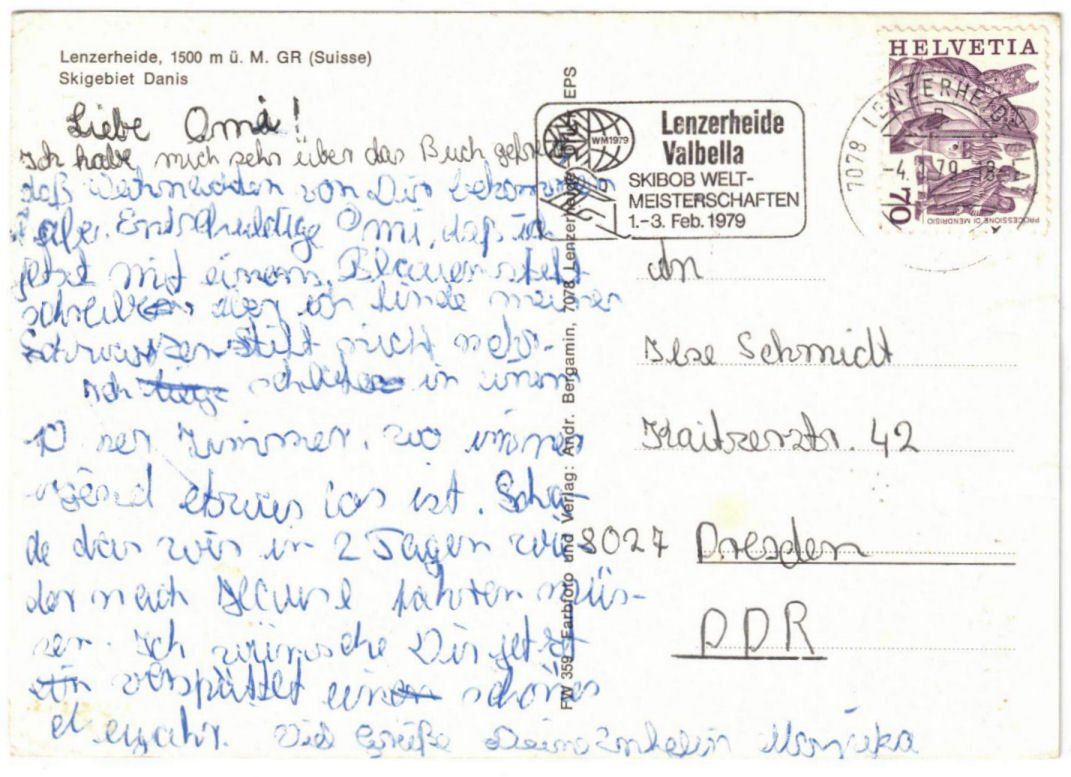 Lenzerheide, 1500 m ü. M. GR (Suisse)
Skigebiet Danis
Liebe Omi!
Ich habe mich sehr über das Buch
daß Weihnachten von Dir bekommen
aber. Entschuldige Omi, daß ich
jetzt mit einem Blauen stift
schreibe, aber ich finde meinen
Schwarzen Stift nicht mehr.
Ich schlafe in einem
10 ser Zimmer, wo immer
etwas los ist. Scha-
de das wir in 2 Tagen wie-
der nach fahren müs-
sen. Ich wünsche Dir jetzt
verspätet ein schönes
Neujahr. Viel Grüße Deine Enkelin Monika
FW 359 Farbfoto und Verlag: Andr. Bergamin, 7078 Lenzerheide EPS
WM 1979
Lenzerheide
Valbella
SKIBOB WELT-
MEISTERSCHAFTEN
1.-3. Feb. 1979
HELVETIA
70
PROCESSIONE DI MENDRISIO
7078 LENZERHEIDE
-4. 1. 79-18
An
Ilse Schmidt
Kaitzerstr. 42
8027 Dresden
DDR